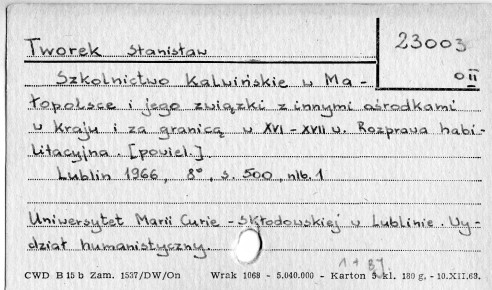 Tworek Stanisław
23003
0 II
Szkolnictwo Kalwińskie w Ma-
łopolsce i jego związki z innymi ośrodkami
w kraju i za granicą w XVI-XVII w. Rozprawa habi-
litacyjna. [powiel.].
Lublin 1966, 8°, s. 500, nlb. 1
Uniwersytet Marii Curie-Skłodowskiej w Lublinie. Wy-
dział humanistyczny.
CWD B 15 b Zam. 1537/DW/On Wrak 1068 - 5.040.000 - Karton 5 kl. 180 g. - 10.XII.63.